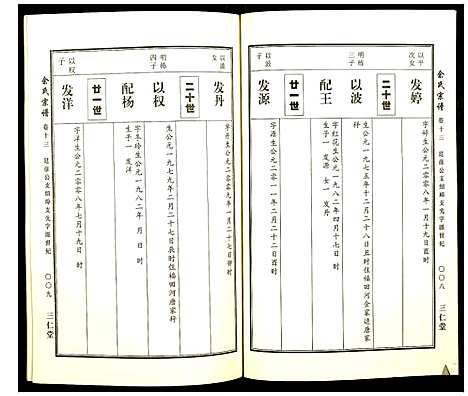 余氏宗谱
卷十三
世纪
〇〇八
三仁堂
以平
次女
发婷
字婷生公元二〇〇八年六月二十九日 时
二十世
明栋
三子
以波
生公元一九七五年十二月二十八日丑时住福田河余家边唐家
祥
配王
字红花生公元一九八二年四月十七日 时
生子一 发源 女一 发丹
廿一世
以波
子
发源
字源生公元二〇〇一年二月十二日酉时
以波
女
发丹
字丹生公元二〇〇九年一月二十七日 时
二十世
明栋
四子
以权
生公元一九七九年二月二十七日辰时住福田河唐家祥
配杨
字冬玲生公元一九八二年 月 日 时
生子一 发洋
廿一世
以权
子
发洋
字洋生公元二〇〇八年七月十九日 时
余氏宗谱
卷十三
世纪
〇〇九
三仁堂